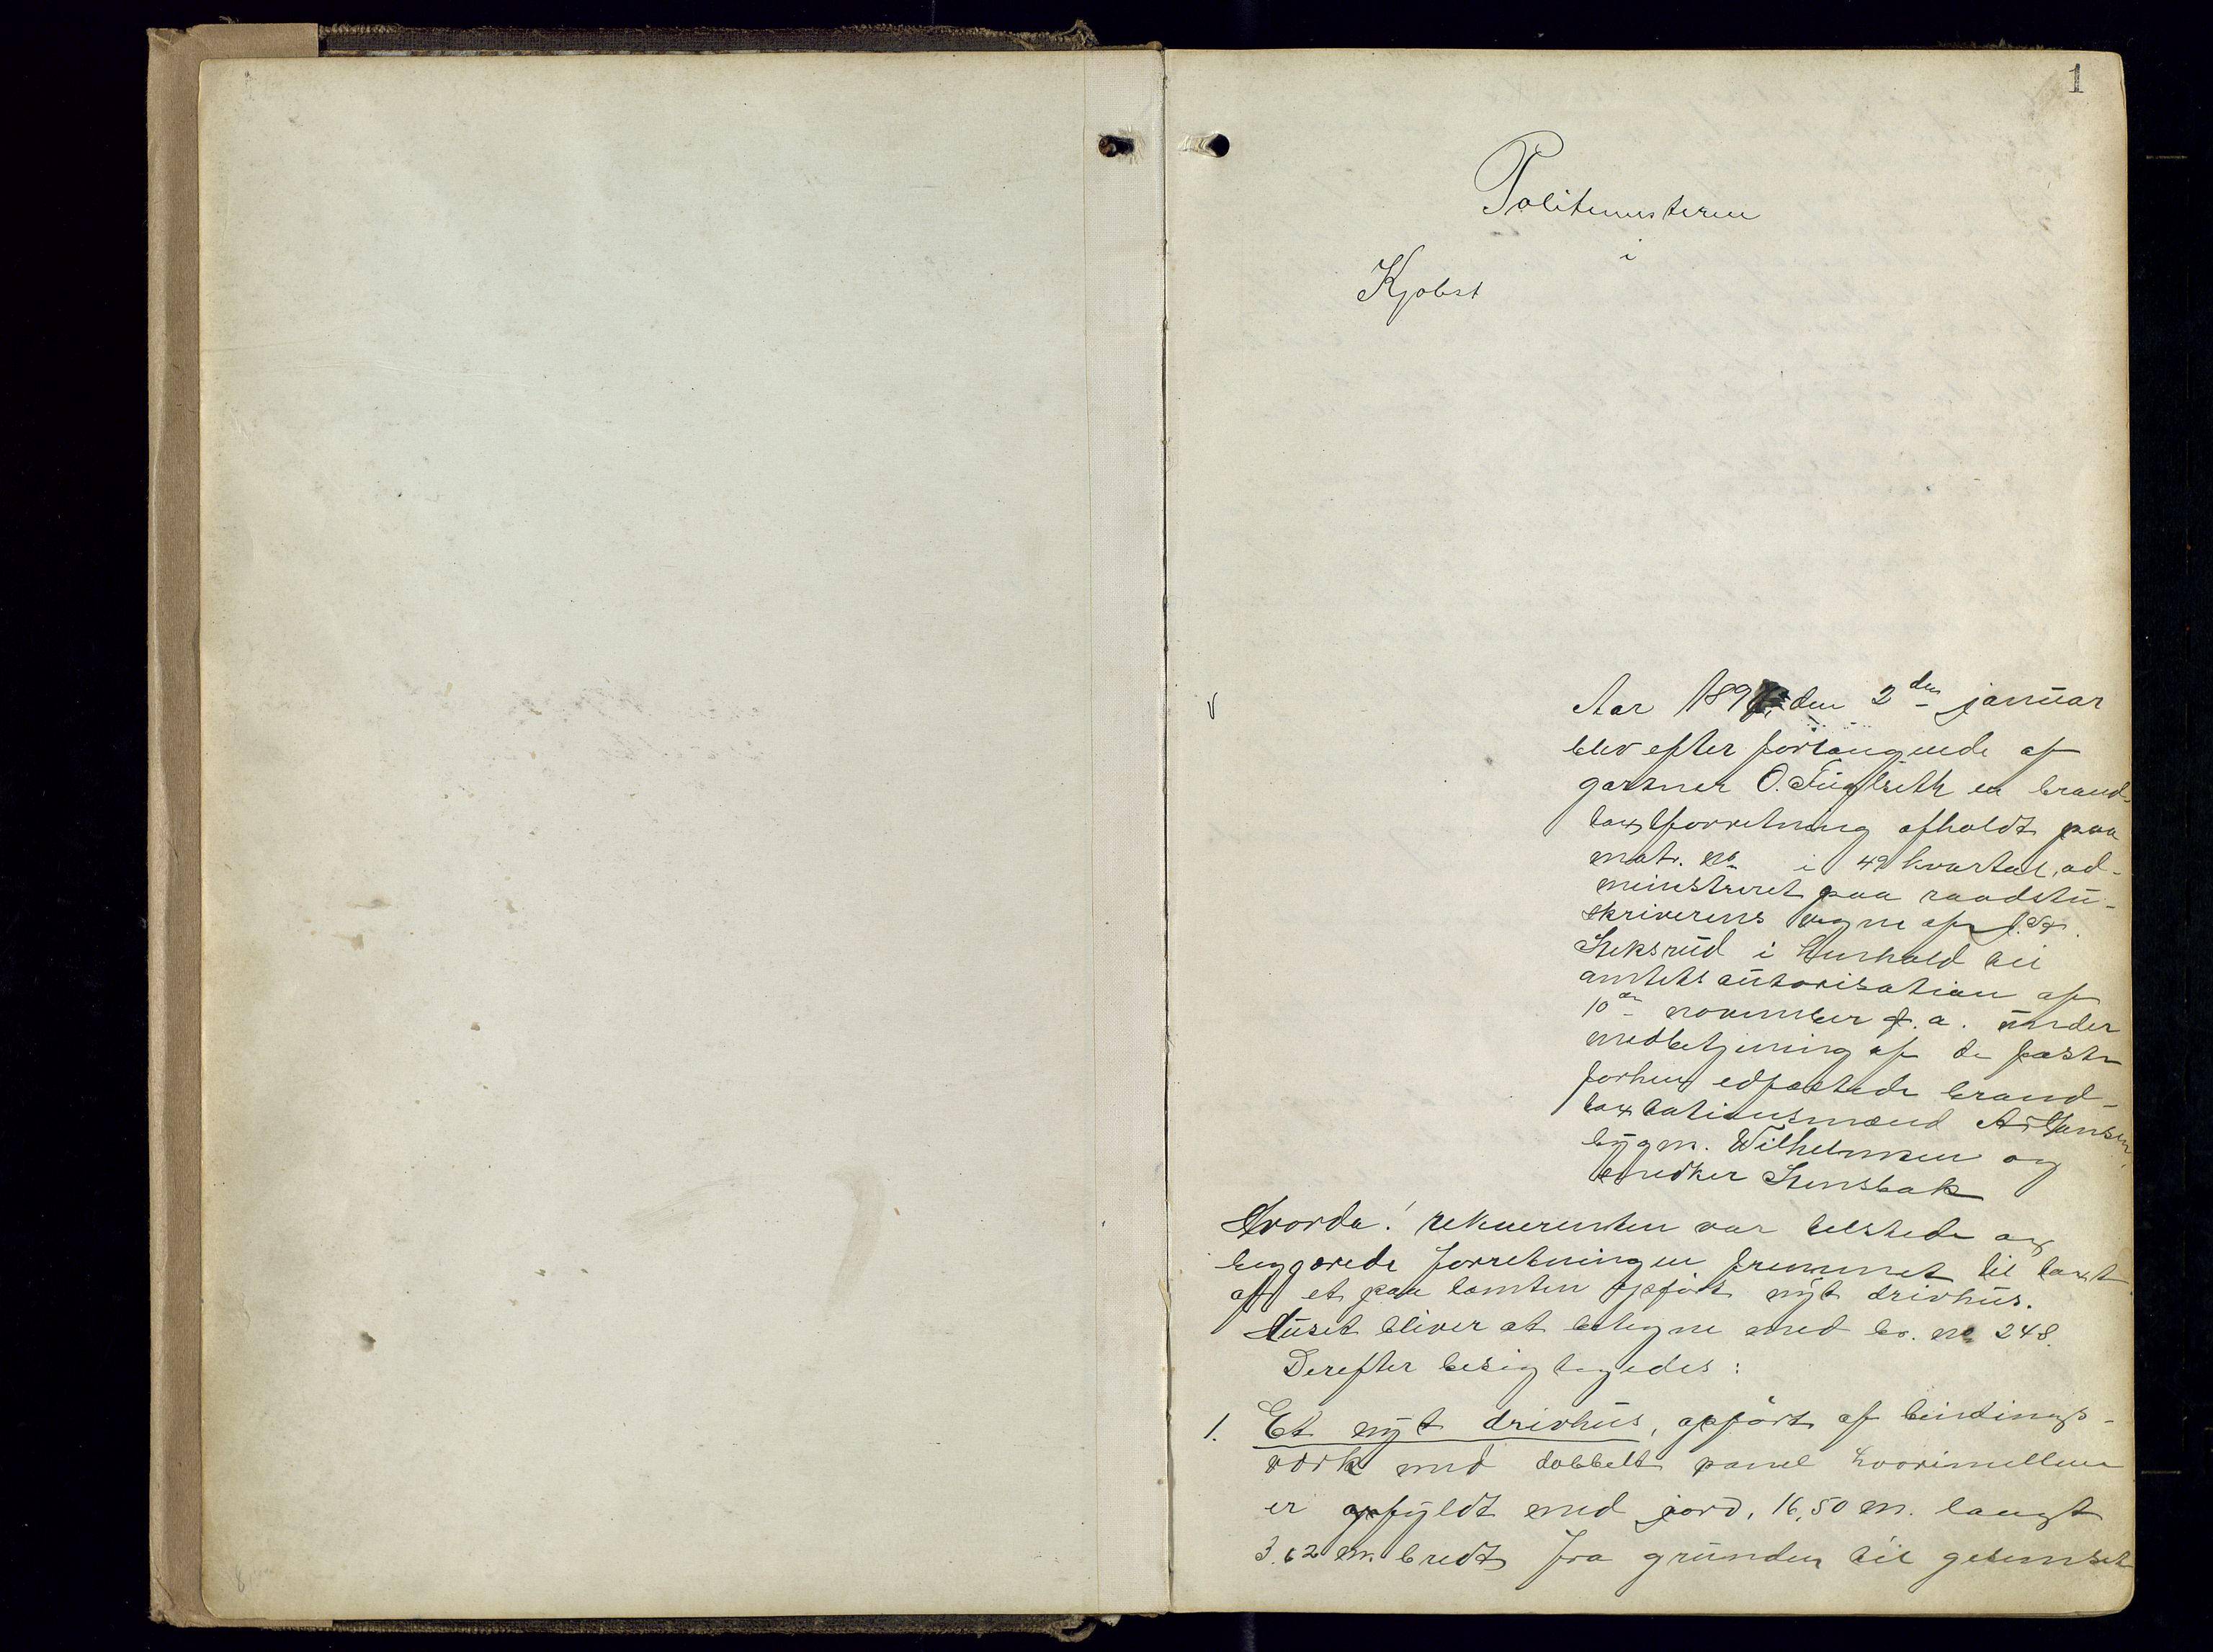 1
Politimesteren
i
Kjøbst
Aar 189 den 2den januar
blev efter forlangende af
gartner O. Fuglseth en brand-
taxtforretning afholdt paa
matr. no i 49 kvartal, ad-
ministreret paa raadstu-
skriverens vegne af
Steksrud i henhold til
amtets autorisation af
10de november f. a. under
medbetjening af de faste
forhen edfæstede brand-
taxtationsmænd A. Hansen,
bygm. Wilhelmsen og
snedker Stensbak
Hvorda! rekvirenten var tilstede og
begjærede forretningen fremmet til taxt
af et paa tomten opført nyt drivhus.
Huset bliver at betegne med br. no 248.
Derefter besigtigedes:
1. Et nyt drivhus, opført af bindings-
værk med dobbelt panel hvorimellem
er opfyldt med jord, 16,50 m. langt
3.62 m. bredt fra grunden til gesimset